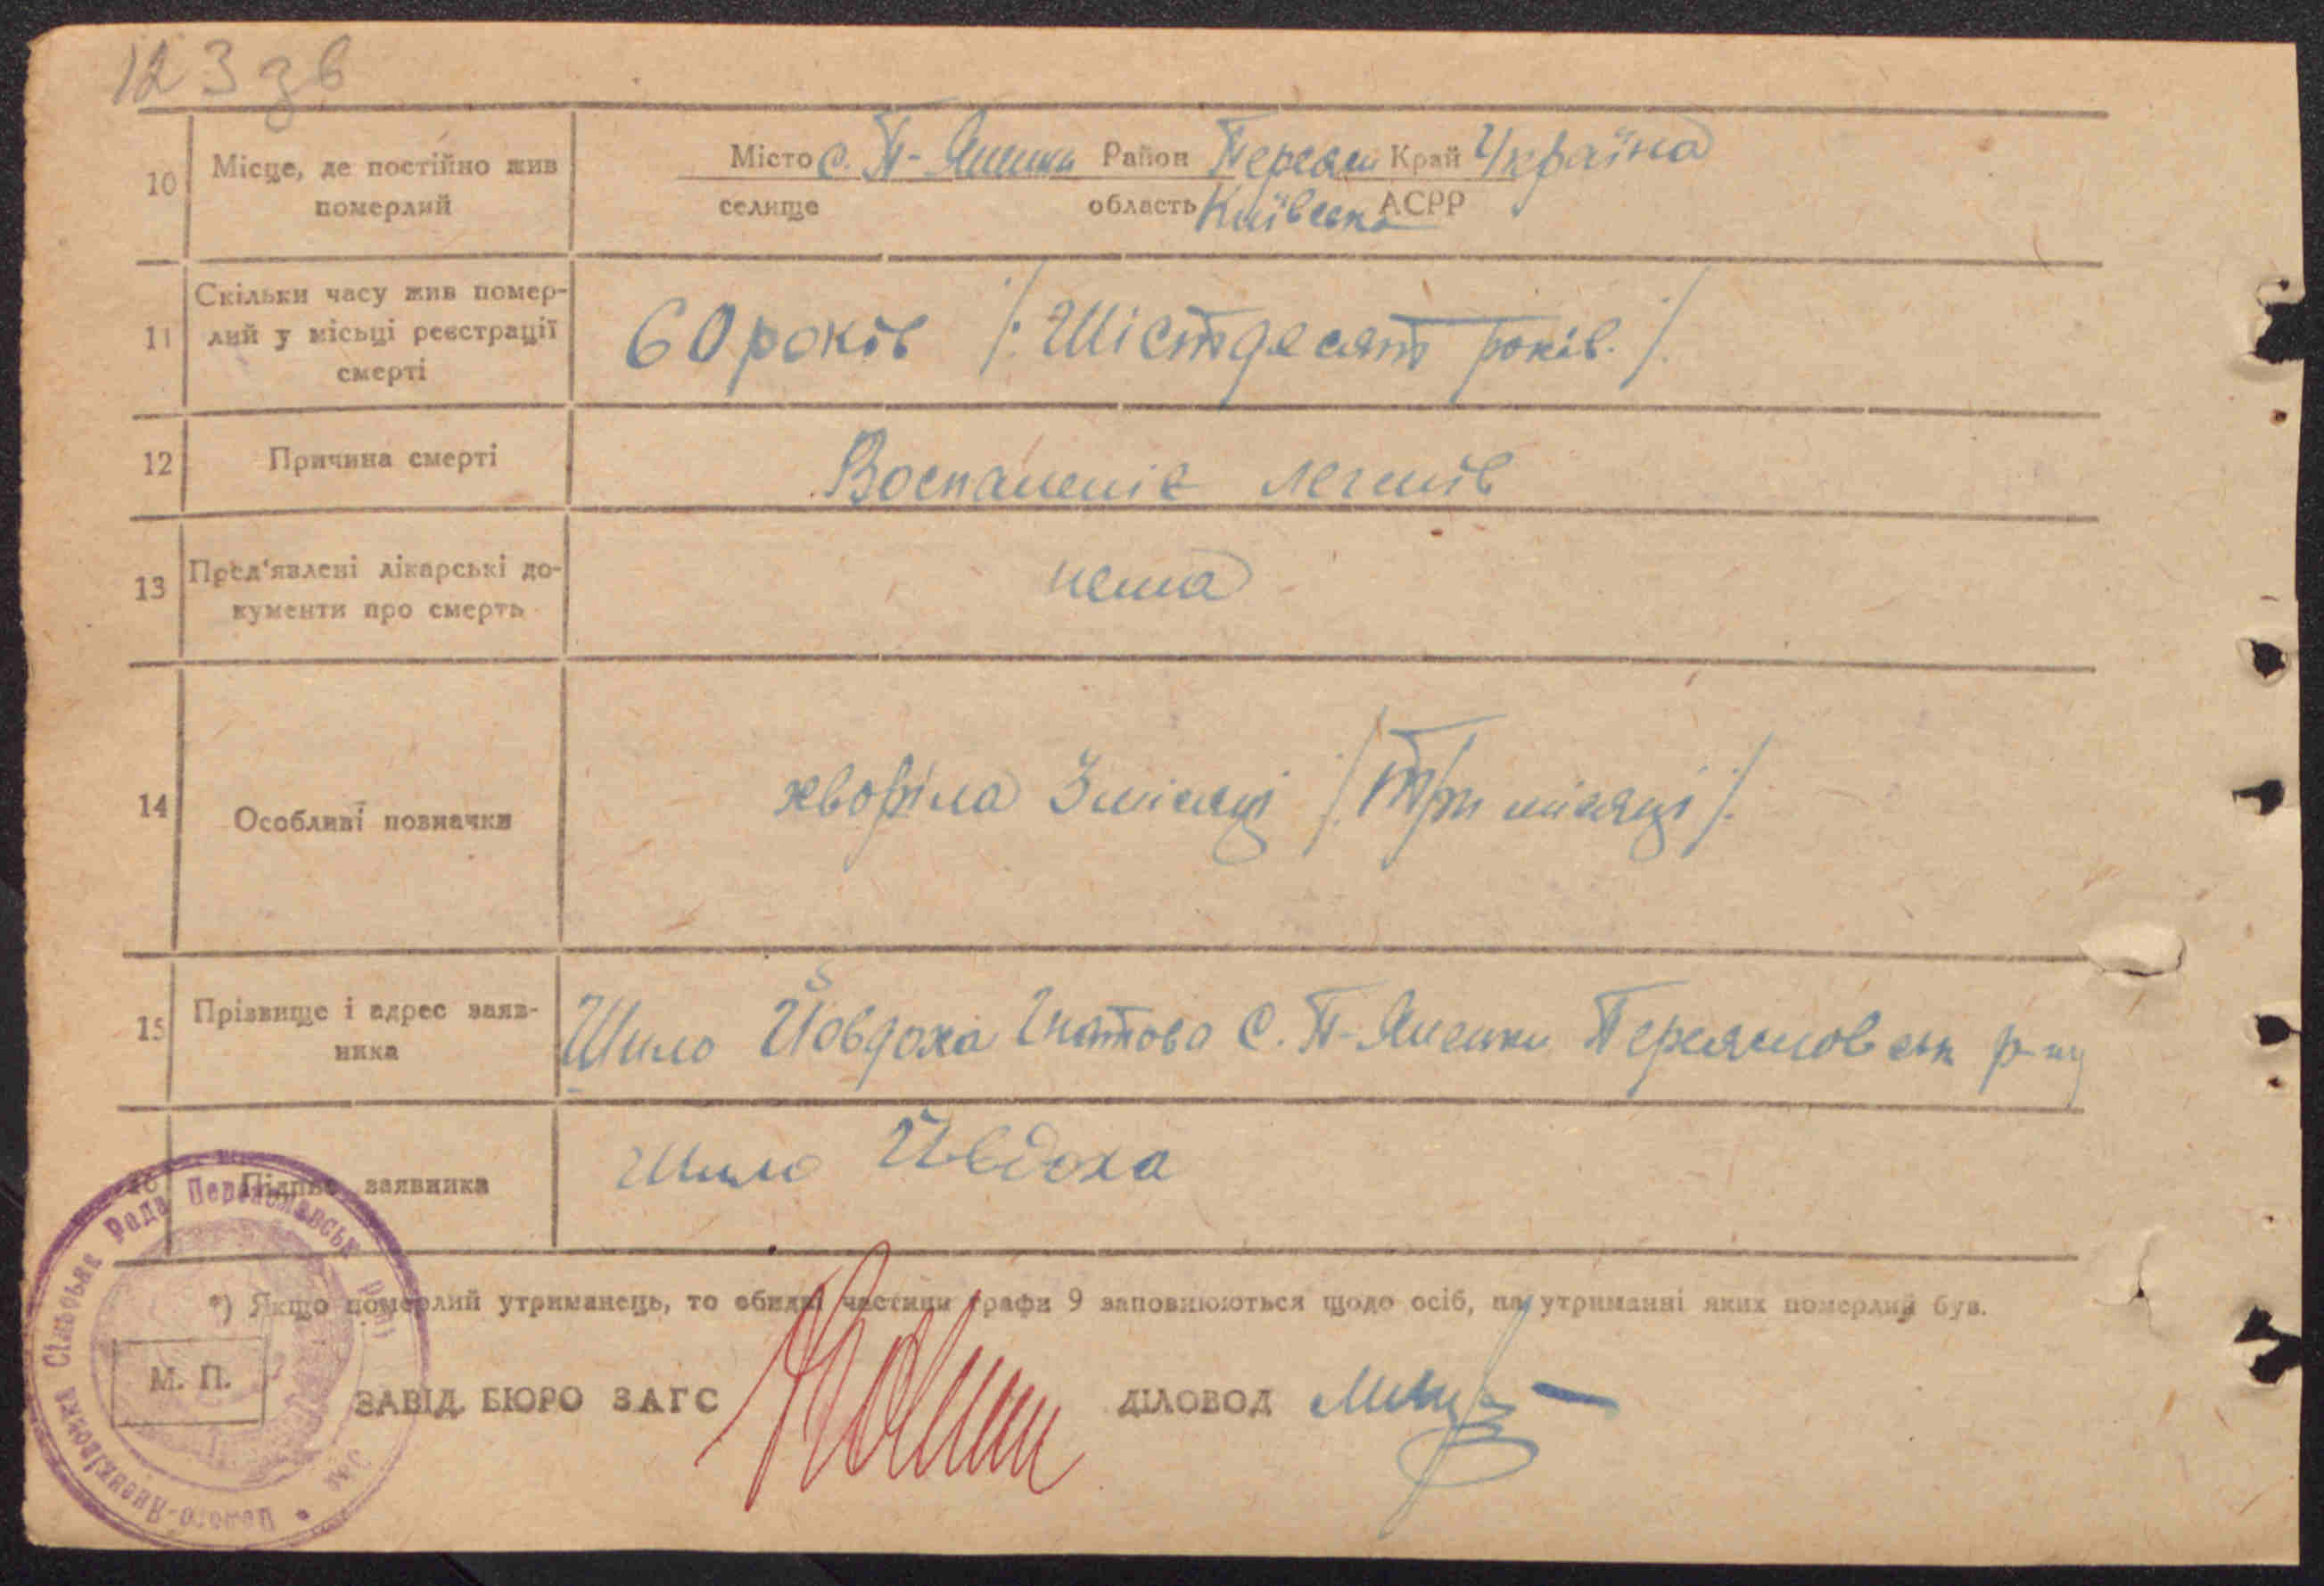 123 зв
10 Місце, де постійно жив померлий
Місто с. П-Яненки Район Переям Край Україна
селище область Київська АСРР
11 Скільки часу жив помер-
лий у місьці реєстрації
смерті
60 років /: Шістдесят років. :/
12 Причина смерті Воспаленіє легенів
13 Пред'явлені лікарські до-
кументи про смерть
нема
14 Особливі позначки хворіла 3 місяці /: Три місяці :/
15 Прізвище і адрес заяв-
ника
Шило Йовдоха Ігнатова с. П-Яненки Переяславськ р-ну
16 Підпис заявника Шило Йвдоха
*) Якщо померлий утриманець, то обидві частини графи 9 заповнюються щодо осіб, на утриманні яких померлий був.
М. П.
ЗАВІД. БЮРО ЗАГС ДІЛОВОД
Сільська Рада Переяславськ